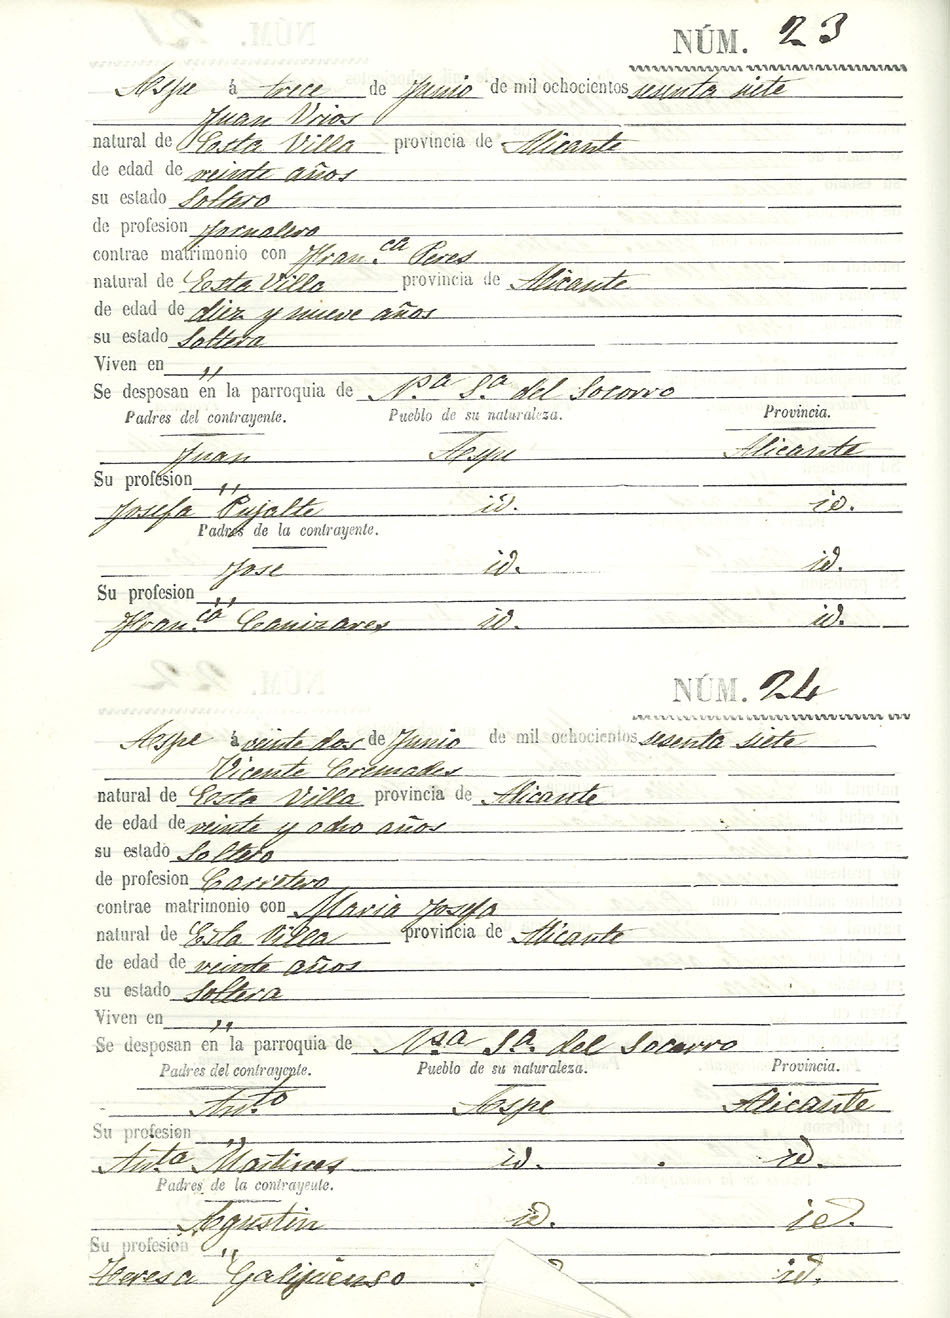 NÚM. 23
Aspe á trece de Junio de mil ochocientos sesenta siete
Juan Vrios
natural de Esta Villa provincia de Alicante
de edad de veinte años
su estado Soltero
de profesion Jornalero
contrae matrimonio con Fran.ca Peres
natural de Esta Villa provincia de Alicante
de edad de diez y nueve años
su estado Soltera
Viven en "
Se desposan en la parroquia de N.a S.a del Socorro
Padres del contrayente. Pueblo de su naturaleza. Provincia.
Juan Aspe Alicante
Su profesion "
Josefa Pujalte id. id.
Padres de la contrayente.
Jose id. id.
Su profesion "
Fran.ca Canizares id. id.
NÚM. 24
Aspe á veinte dos de Junio de mil ochocientos sesenta siete
Vicente Cremades
natural de Esta Villa provincia de Alicante
de edad de veinte y ocho años
su estado Soltero
de profesion Carretero
contrae matrimonio con Maria Josefa
natural de Esta Villa provincia de Alicante
de edad de veinte años
su estado Soltera
Viven en "
Se desposan en la parroquia de N.sa S.a del Socorro
Padres del contrayente. Pueblo de su naturaleza. Provincia.
Ant.o Aspe Alicante
Su profesion "
Ant.a Martines id. id.
Padres de la contrayente.
Agustin id. id.
Su profesion "
Teresa Galipienso id.